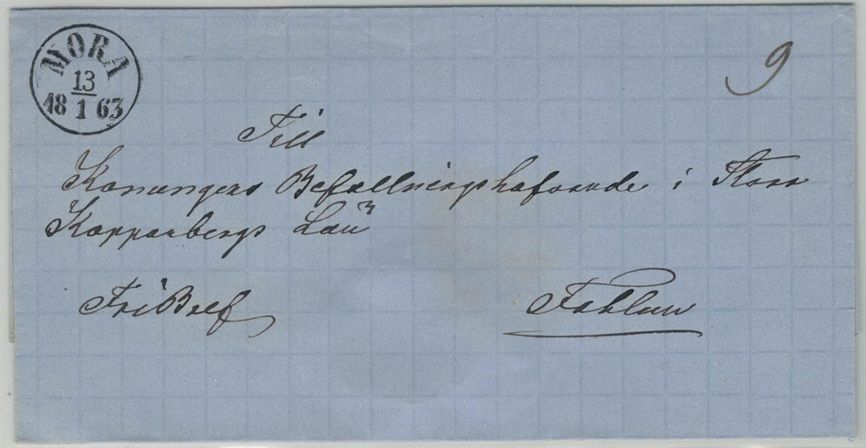 MORA
13
18 1 63
9
Till
Konungens Befallningshafvande i Stora
Kopparbergs Län
Fri Bref
Fahlun